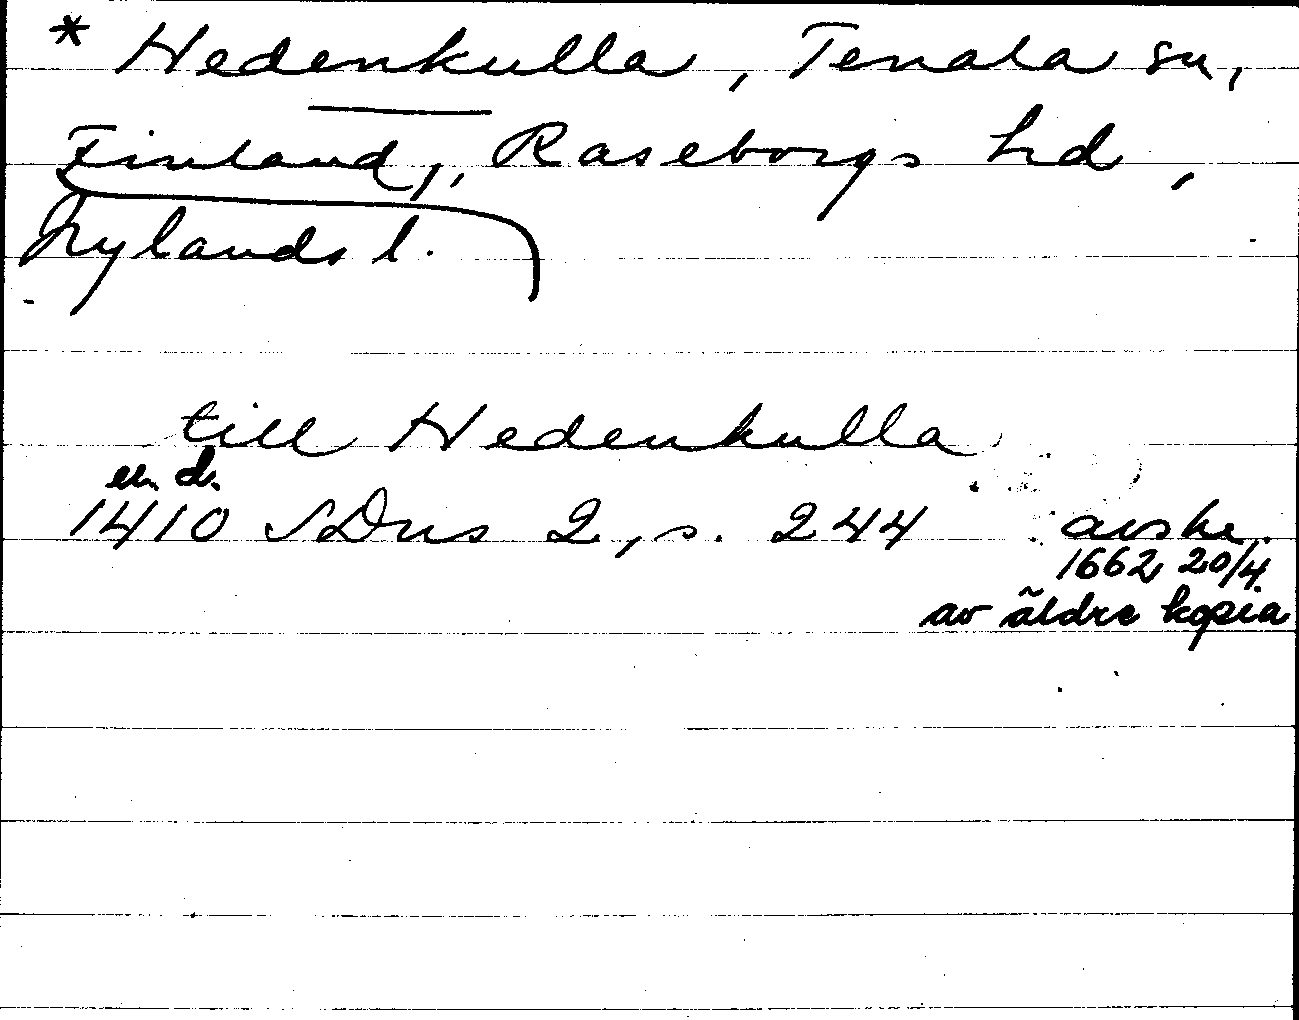 * Hedenkulla, Tenala sn,
Finland, Raseborgs hd,
Nylands l.
till Hedenkulla
u. d.
1410 SDns 2, s. 244 avskr.
1662 20/4
av äldre kopia